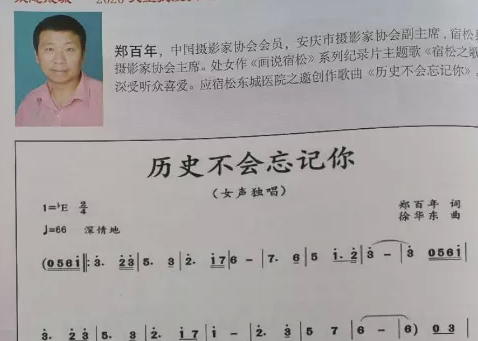 郑百年，中国摄影家协会会员，安庆市摄影家协会副主席，宿松
摄影家协会主席。处女作《画说宿松》系列纪录片主题歌《宿松之歌
深受听众喜爱。应宿松东城医院之邀创作歌曲《历史不会忘记你》，
历史不会忘记你
（女声独唱）
1=♭E 2/4
郑百年 词
♩=66 深情地
徐华东 曲
(0561̇‖: 3̇. 2̇3̇|5. 3|2̇. 1̇7|6 - |7. 6|5 1̇.2̇|3̇ - |3̇ 0561̇|
3̇. 2̇3̇|5. 3|2̇. 1̇7|1̇ - |2̇. 3|5 7|6 - |6) 03|